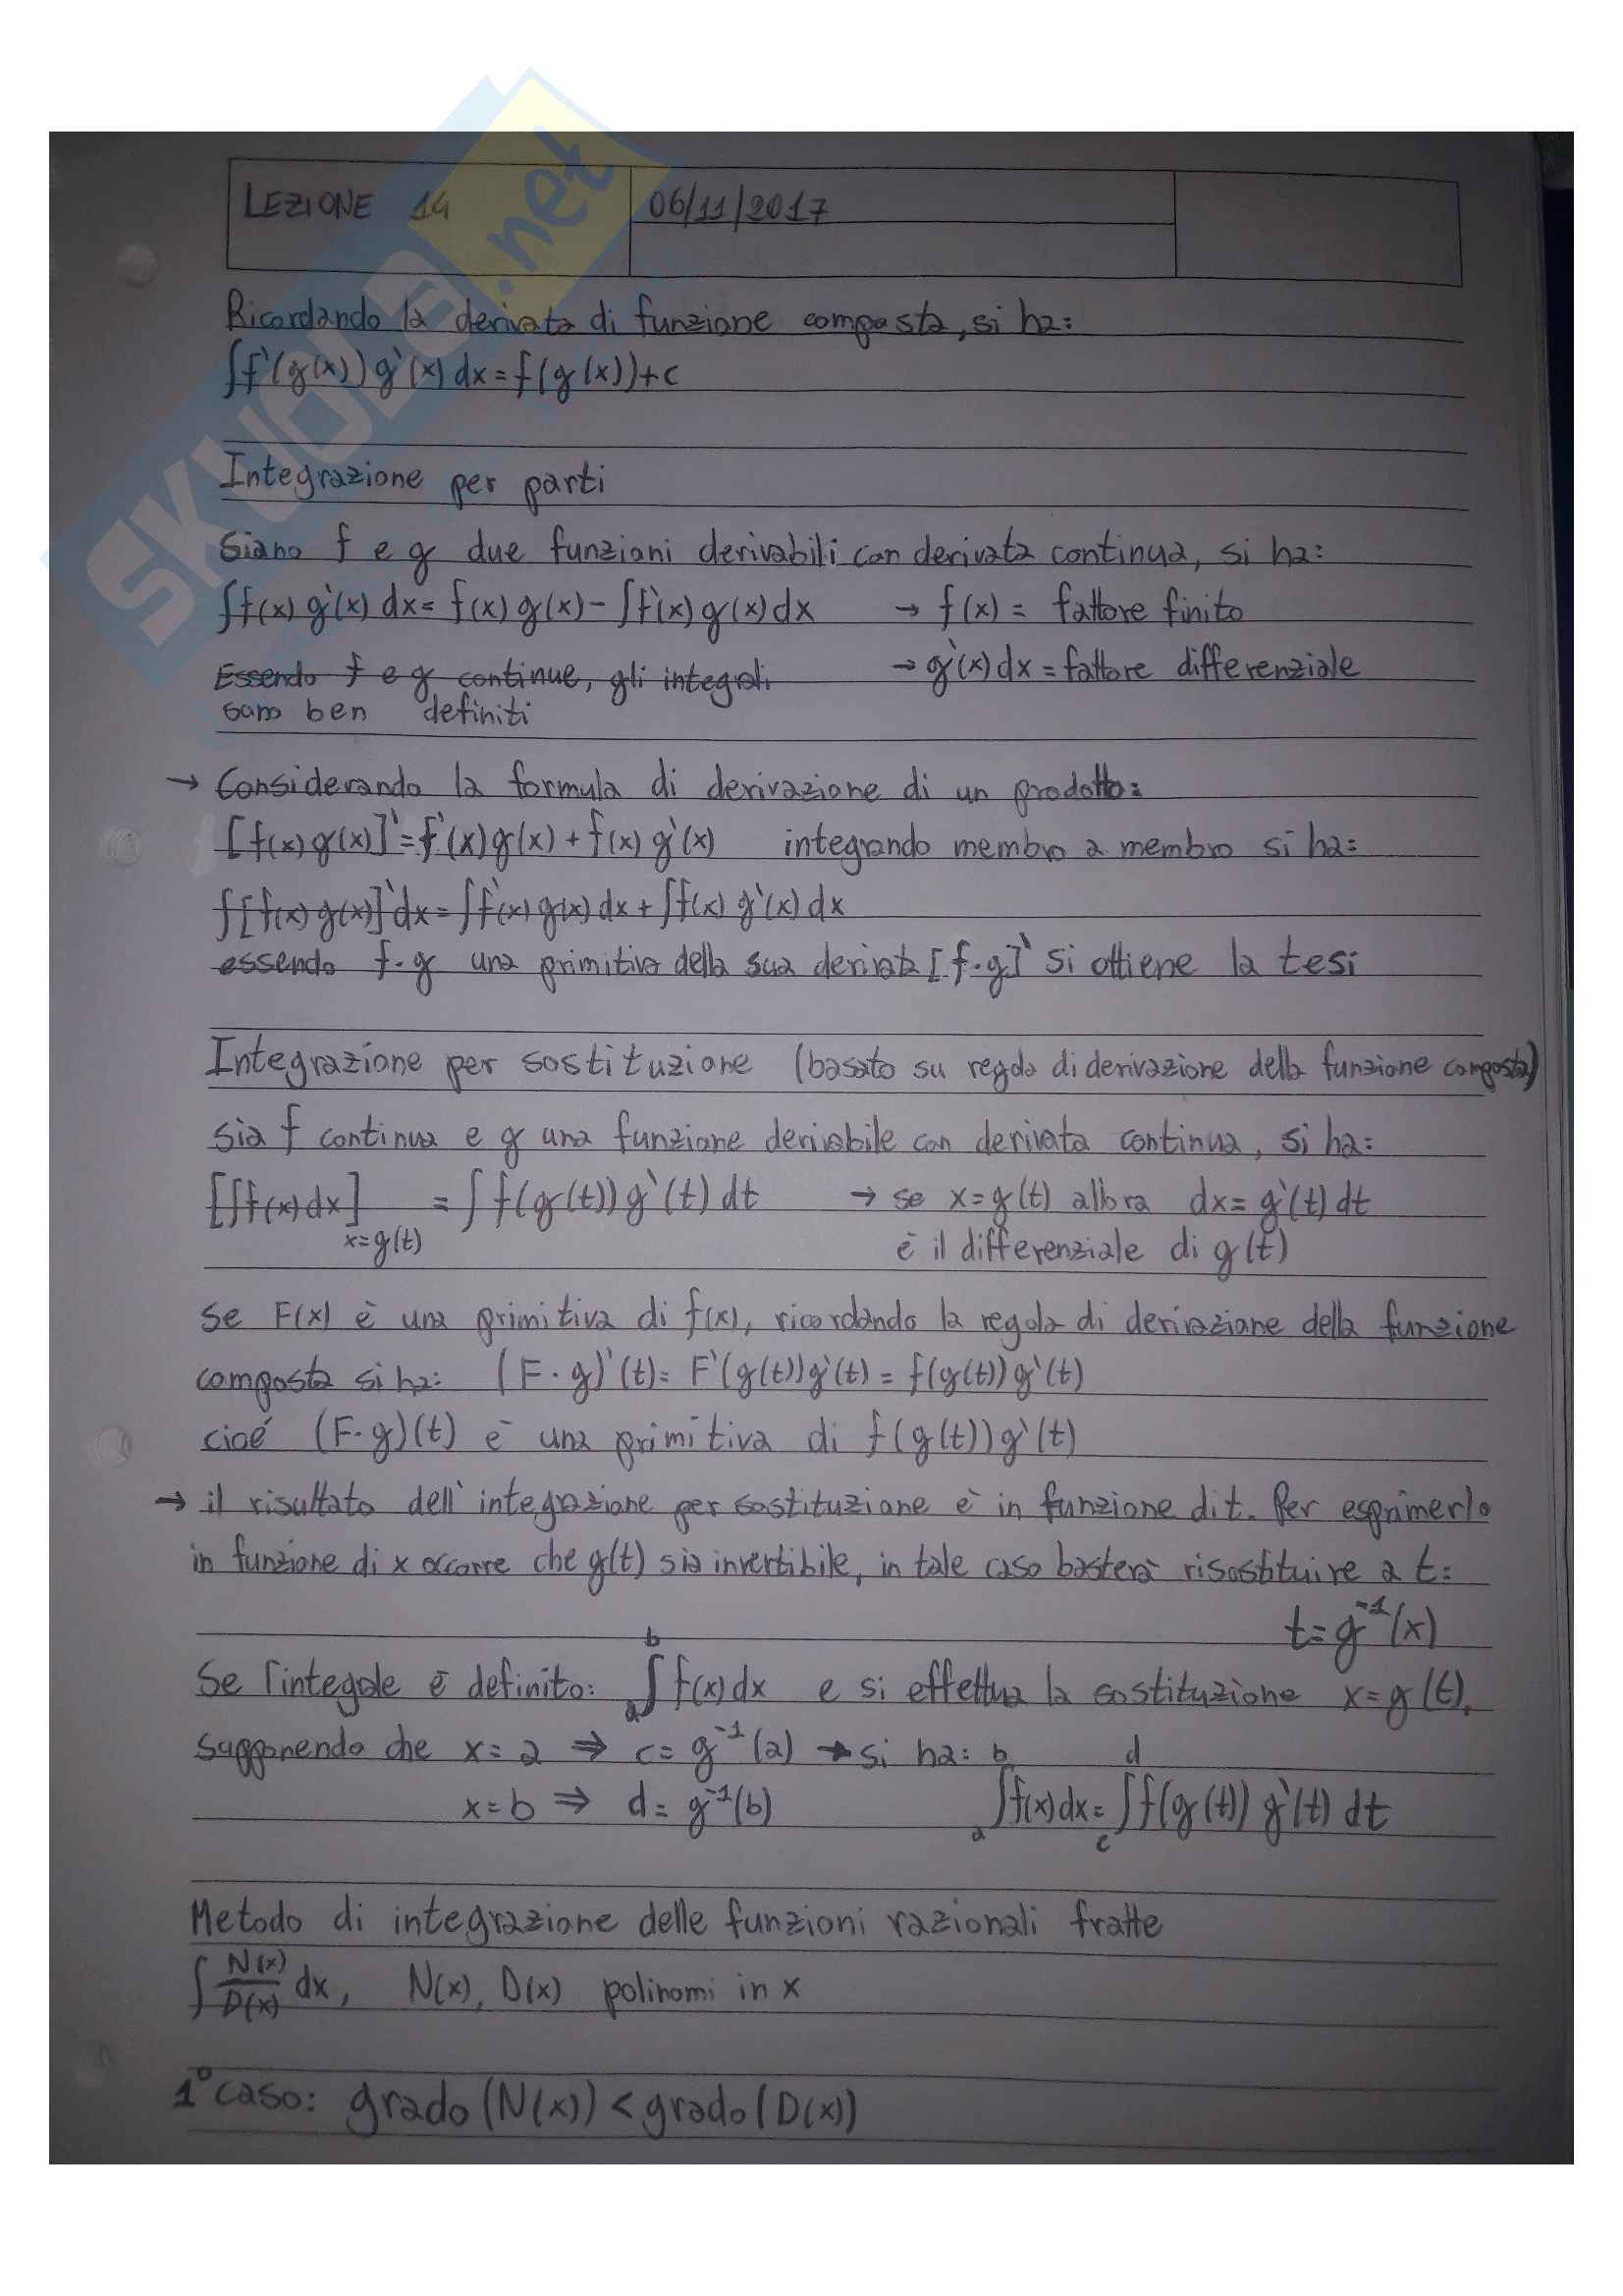 LEZIONE 14 06/11/2017
Ricordando la derivata di funzione composta, si ha:
∫f'(g(x)) g'(x) dx = f(g(x)) + c
Integrazione per parti
Siano f e g due funzioni derivabili con derivata continua, si ha:
∫f(x) g'(x) dx = f(x) g(x) - ∫f'(x) g(x) dx → f(x) = fattore finito
Essendo f e g continue, gli integrali → g'(x) dx = fattore differenziale
sano ben definiti
→ Considerando la formula di derivazione di un prodotto:
[f(x) g(x)]' = f'(x) g(x) + f(x) g'(x) integrando membro a membro si ha:
∫[f(x) g(x)]' dx = ∫f'(x) g(x) dx + ∫f(x) g'(x) dx
essendo f·g una primitiva della sua derivata [f·g]' si ottiene la tesi
Integrazione per sostituzione (basato su regola di derivazione della funzione composta)
sia f continua e g una funzione derivabile con derivata continua, si ha:
[∫f(x) dx] x=g(t) = ∫f(g(t)) g'(t) dt → se x = g(t) allora dx = g'(t) dt
è il differenziale di g(t)
Se F(x) è una primitiva di f(x), ricordando la regola di derivazione della funzione
composta si ha: (F·g)'(t) = F'(g(t)) g'(t) = f(g(t)) g'(t)
cioé (F·g)(t) è una primitiva di f(g(t)) g'(t)
→ il risultato dell'integrazione per sostituzione è in funzione di t. Per esprimerlo
in funzione di x occorre che g(t) sia invertibile, in tale caso basterà risostituire a t:
t = g⁻¹(x)
Se l'integale è definito: a∫b f(x) dx e si effettua la sostituzione x = g(t),
supponendo che x = a ⇒ c = g⁻¹(a) → si ha:
x = b ⇒ d = g⁻¹(b) a∫b f(x) dx = c∫d f(g(t)) g'(t) dt
Metodo di integrazione delle funzioni razionali fratte
∫ N(x)/D(x) dx, N(x), D(x) polinomi in x
1° caso: grado (N(x)) < grado (D(x))
SKUOLA.net